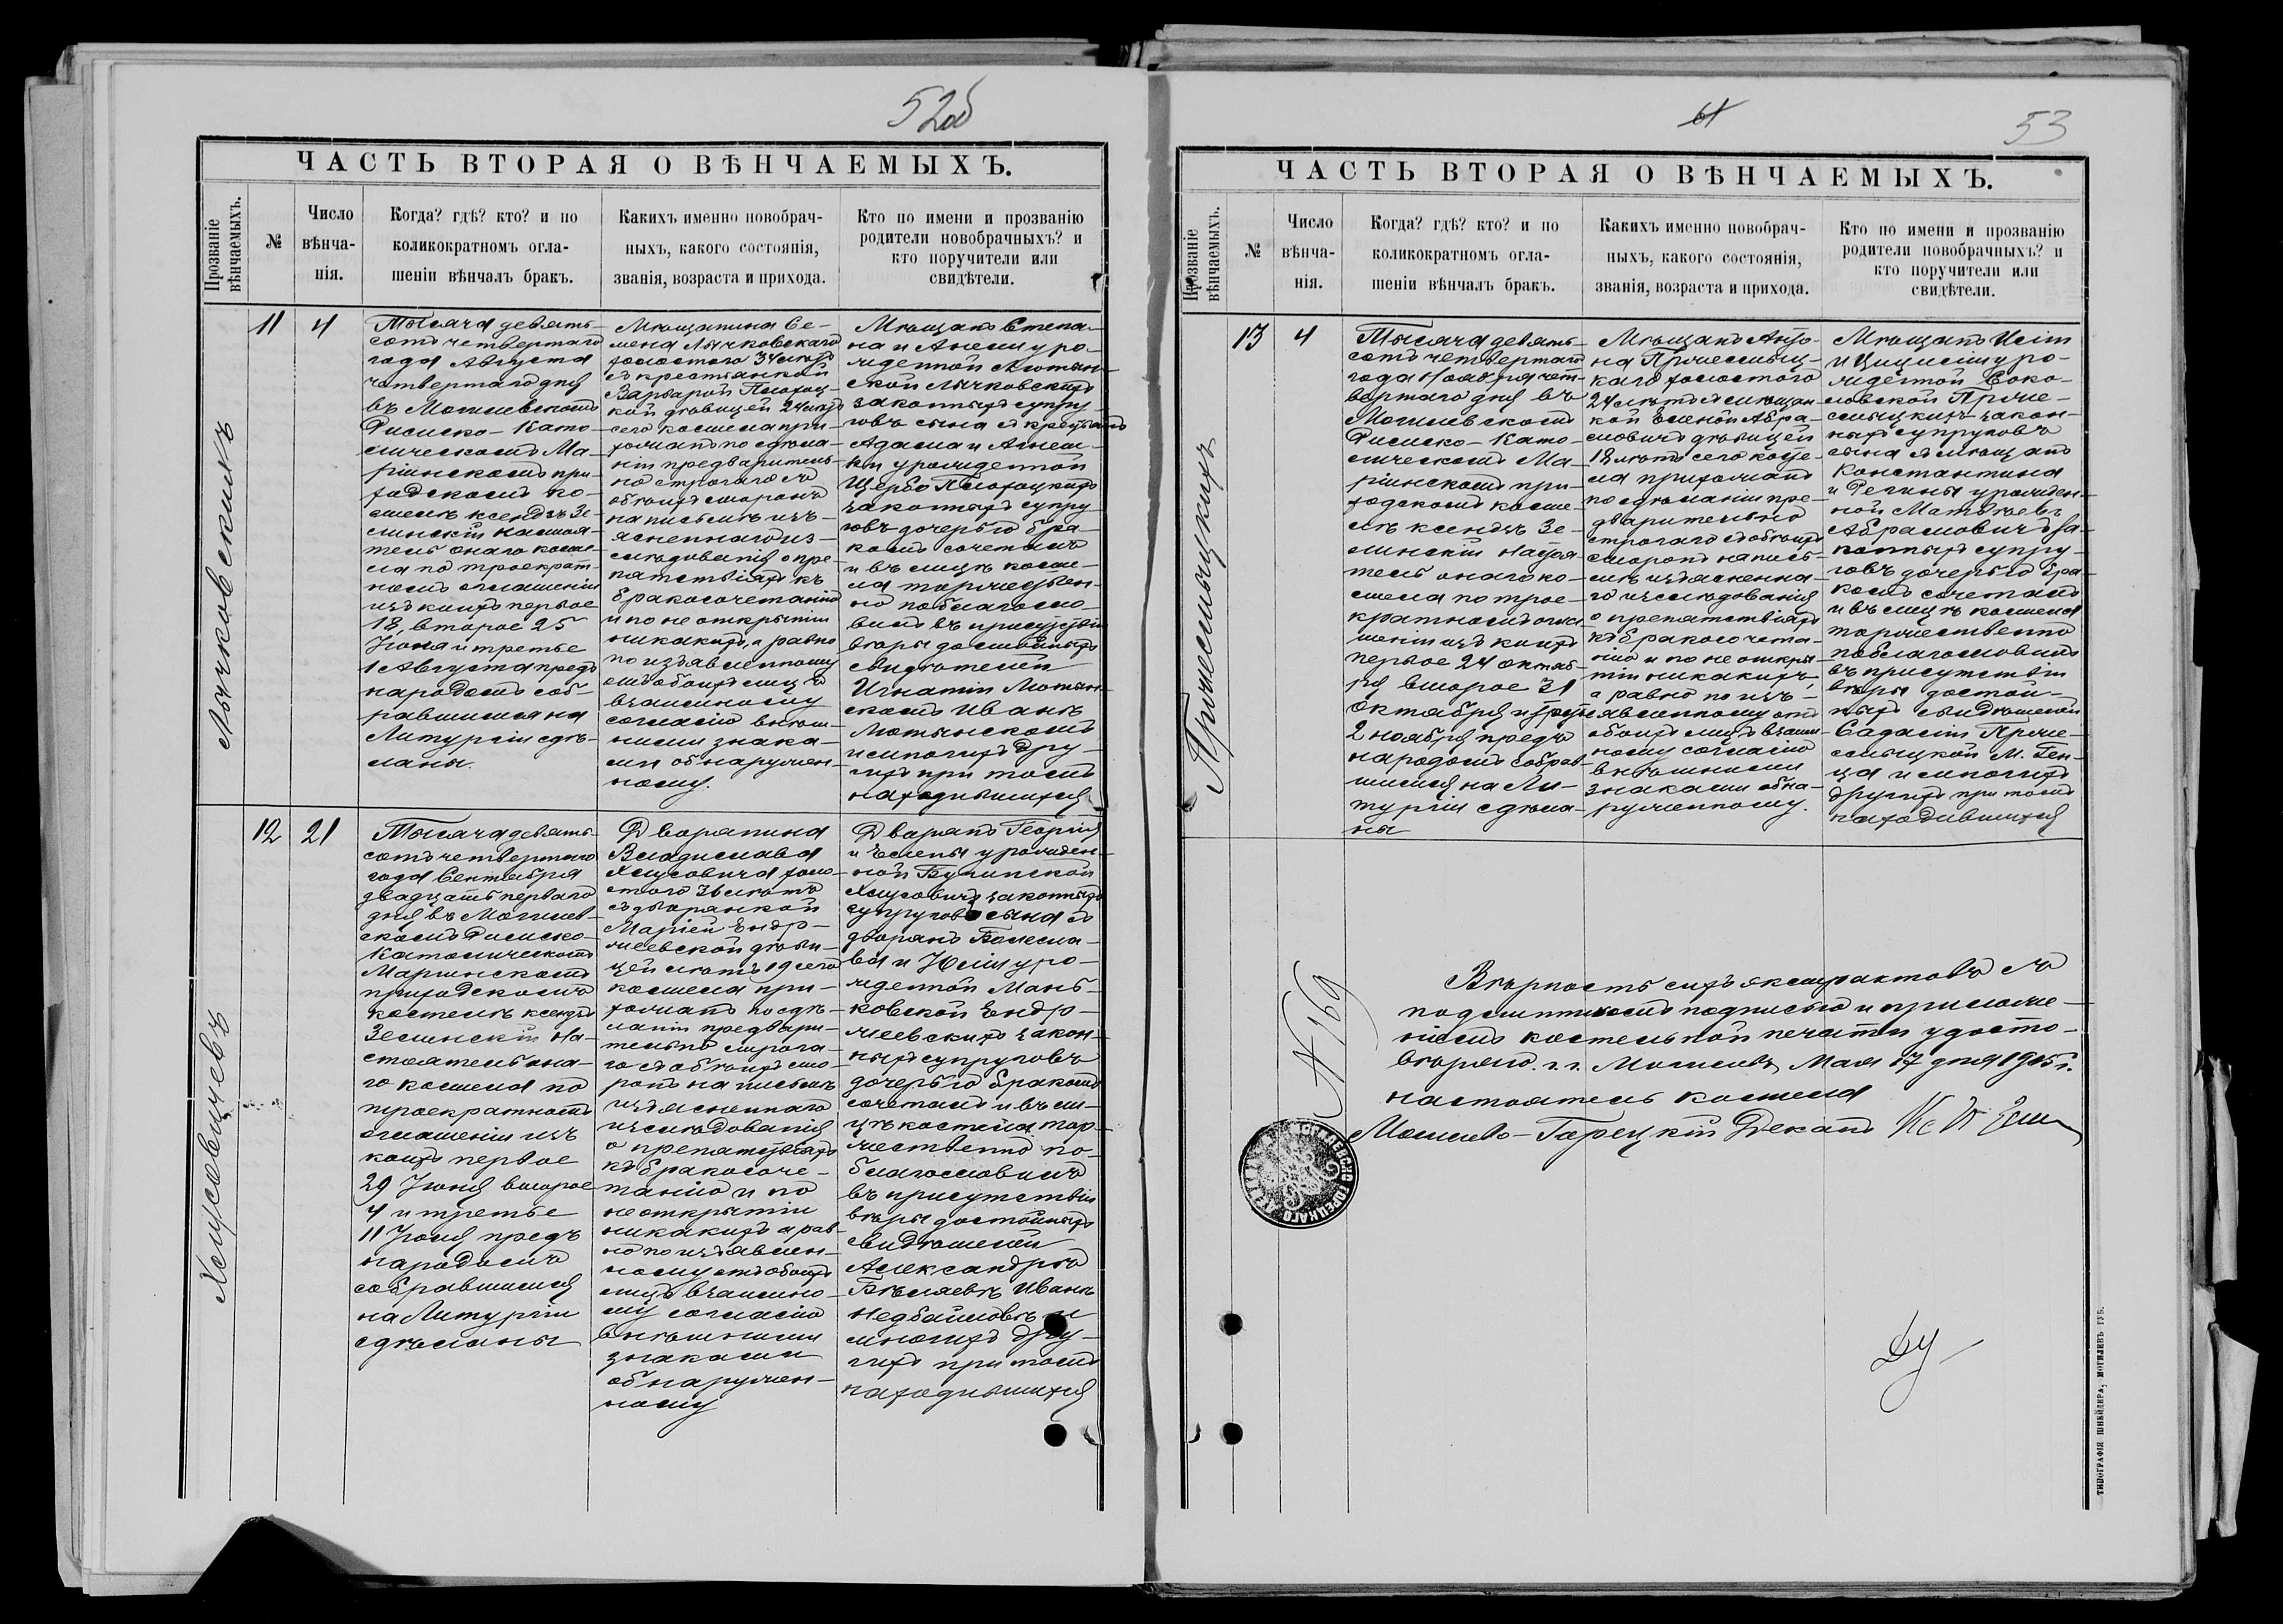 52об
ЧАСТЬ ВТОРАЯ О ВѢНЧАЕМЫХЪ.
Прозваніе
вѣнчаемыхъ.
№
Число
вѣнча-
нія.
Когда? гдѣ? кто? и по
коликократномъ огла-
шеніи вѣнчалъ бракъ.
Какихъ именно новобрач-
ныхъ, какого состоянія,
званія, возраста и прихода.
Кто по имени и прозванію
родители новобрачныхъ? и
кто поручители или
свидѣтели.
Лычковскихъ
11
4
Тысяча девять-
сотъ четвертаго
года Августа
четвертаго дня
въ Могилевскомъ
Римско-Като-
лическомъ Ма-
ріинскомъ при-
ходскомъ ко-
стелѣ ксендзъ Зе-
линскій настоя-
тель онаго косте-
ла по троекрат-
номъ оглашеніи
изъ коихъ первое
18, второе 25
Іюля и третье
1 Августа предъ
народомъ соб-
равшимся на
Литургіи сдѣ-
ланы.
Мѣщанина Се-
мена Лычковскаго
холостого 34 лѣтъ
съ крестьянкой
Варварой Плотоц-
кой дѣвицей 24 лѣтъ
сего костела при-
хожанъ по сдѣла-
ніи предваритель-
но строгаго съ
обѣихъ сторонъ
на письмѣ изъ-
ясненнаго из-
слѣдованія о пре-
пятствіяхъ къ
бракосочетанію
и по не открытіи
никакихъ, а равно
по изъявленному
отъ обоихъ лицъ
взаимному
согласію внѣш-
ними знака-
ми обнаружен-
ному.
Мѣщанъ Степа-
на и Анели уро-
жденной Мотын-
ской Лычковскихъ
законныхъ супру-
говъ сына съ крестьянъ
Адама и Агнеш-
ки урожденной
Щербо Плотоцкихъ
законныхъ супру-
говъ дочерью бра-
комъ сочеталъ
и въ лицѣ косте-
ла торжествен-
но поблагосло-
вилъ въ присутствіи
вѣры достойныхъ
свидѣтелей
Игнатіи Мотын-
скомъ Иванѣ
Мотынскомъ
и многихъ дру-
гихъ при томъ
находившихся
Хлусевичевъ
12
21
Тысяча девять-
сотъ четвертаго
года Сентября
двадцать перваго
дня въ Могилев-
скомъ Римско-
Католическомъ
Маріинскомъ
приходскомъ
костелѣ ксендзъ
Зелинскій На-
стоятель она-
го костела по
троекратномъ
оглашеніи изъ
коихъ первое
29 Іюня второе
4 и третье
11 Іюля предъ
народомъ
собравшимся
на Литургіи
сдѣланы
Дворянина
Владислава
Хлусовича холо-
стого 36 лѣтъ
съ дворянкой
Маріей Ендр-
жеевской дѣви-
цей лѣтъ 19 сего
костела при-
хожанъ по сдѣ-
ланіи предвари-
тельно строга-
го съ обѣихъ сто-
ронъ на письмѣ
изъясненнаго
изслѣдованія
о препятствіяхъ
къ бракосоче-
танію и по
не открытіи
никакихъ а рав-
но по изъявлен-
ному отъ обоихъ
лицъ взаимно-
му согласію
внѣшними
знаками
обнаружен-
ному
Дворянъ Георгія
и Елены урожден-
ной Бунинской
Хлусовичъ законныхъ
супруговъ сына съ
дворянъ Болесла-
ва и Юліи уро-
жденной Мань-
ковской Ендр-
жеевскихъ закон-
ныхъ супруговъ
дочерью бракомъ
сочеталъ и въ ли-
цѣ костела тор-
жественно по-
благословилъ
въ присутствіи
вѣры достойныхъ
свидѣтелей
Александрѣ
Бѣляевѣ Иванѣ
Недбайловѣ и
многихъ дру-
гихъ при томъ
находившихся
53
ЧАСТЬ ВТОРАЯ О ВѢНЧАЕМЫХЪ.
Прозваніе
вѣнчаемыхъ.
№
Число
вѣнча-
нія.
Когда? гдѣ? кто? и по
коликократномъ огла-
шеніи вѣнчалъ бракъ.
Какихъ именно новобрач-
ныхъ, какого состоянія,
званія, возраста и прихода.
Кто по имени и прозванію
родители новобрачныхъ? и
кто поручители или
свидѣтели.
Пржесмыцкихъ
13
4
Тысяча девять-
сотъ четвертаго
года Ноября чет-
вертаго дня въ
Могилевскомъ
Римско-Като-
лическомъ Ма-
ріинскомъ при-
ходскомъ косте-
лѣ ксендзъ Зе-
линскій Настоя-
тель онаго ко-
стела по трое-
кратномъ огла-
шеніи изъ коихъ
первое 24 октяб-
ря второе 31
Октября и третье
2 ноября предъ
народомъ собрав-
шимся на Ли-
тургіи сдѣла-
ны
Мѣщанъ Анто-
на Пржесмыц-
каго холостого
24 лѣтъ съ мѣщан-
кой Еленой Абра-
мовичъ дѣвицей
18 лѣтъ сего косте-
ла прихожанъ
по сдѣланіи пре-
дварительно
строгаго съ обѣихъ
сторонъ на пись-
мѣ изъясненна-
го изслѣдованія
о препятствіяхъ
къ бракосочета-
нію и по не откры-
тіи никакихъ,
а равно по изъ-
явленному отъ
обоихъ лицъ взаим-
ному согласію
внѣшними
знаками обна-
руженному.
Мѣщанъ Юліи
и Цициліи уро-
жденной Соко-
ловской Прже-
смыцкихъ закон-
ныхъ супруговъ
сына съ мѣщанъ
Константина
и Регины урожден-
ной Матѣевъ
Абрамовичъ за-
конныхъ супру-
говъ дочерью бра-
комъ сочеталъ
и въ лицѣ костела
торжественно
поблагословилъ
въ присутствіи
вѣры достой-
ныхъ свидѣтелей
Прже-
смыцкой М. Ген-
ца и многихъ
другихъ при томъ
находившихся
№ 169
Вѣрность сихъ экстрактовъ съ
подлинникомъ подписью и приложе-
ніемъ костельной печати удосто-
вѣряю. г. г. Могилевъ, Мая 17 дня 1905 г.
настоятель костела
Могилево-Горецкій Деканъ
ТИПОГРАФІЯ ШНЕЙДЕРА, МОГИЛЕВЪ ГУБ.